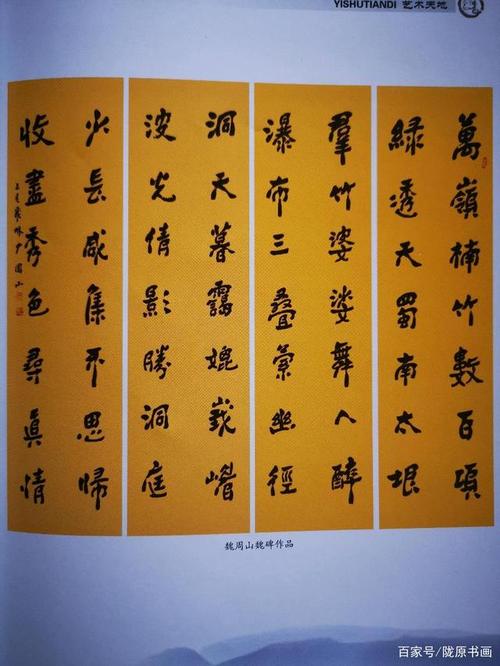 YISHUTIANDI 艺术天地
萬嶺楠竹數百頃
綠透天蜀南太垠
羣竹婆娑舞人醉
瀑布三疊縈幽徑
洞天暮靄媲峩
波光倩影勝洞庭
少長咸集不思歸
收盡秀色尋真情
魏周山魏碑作品
百家号/陇原书画